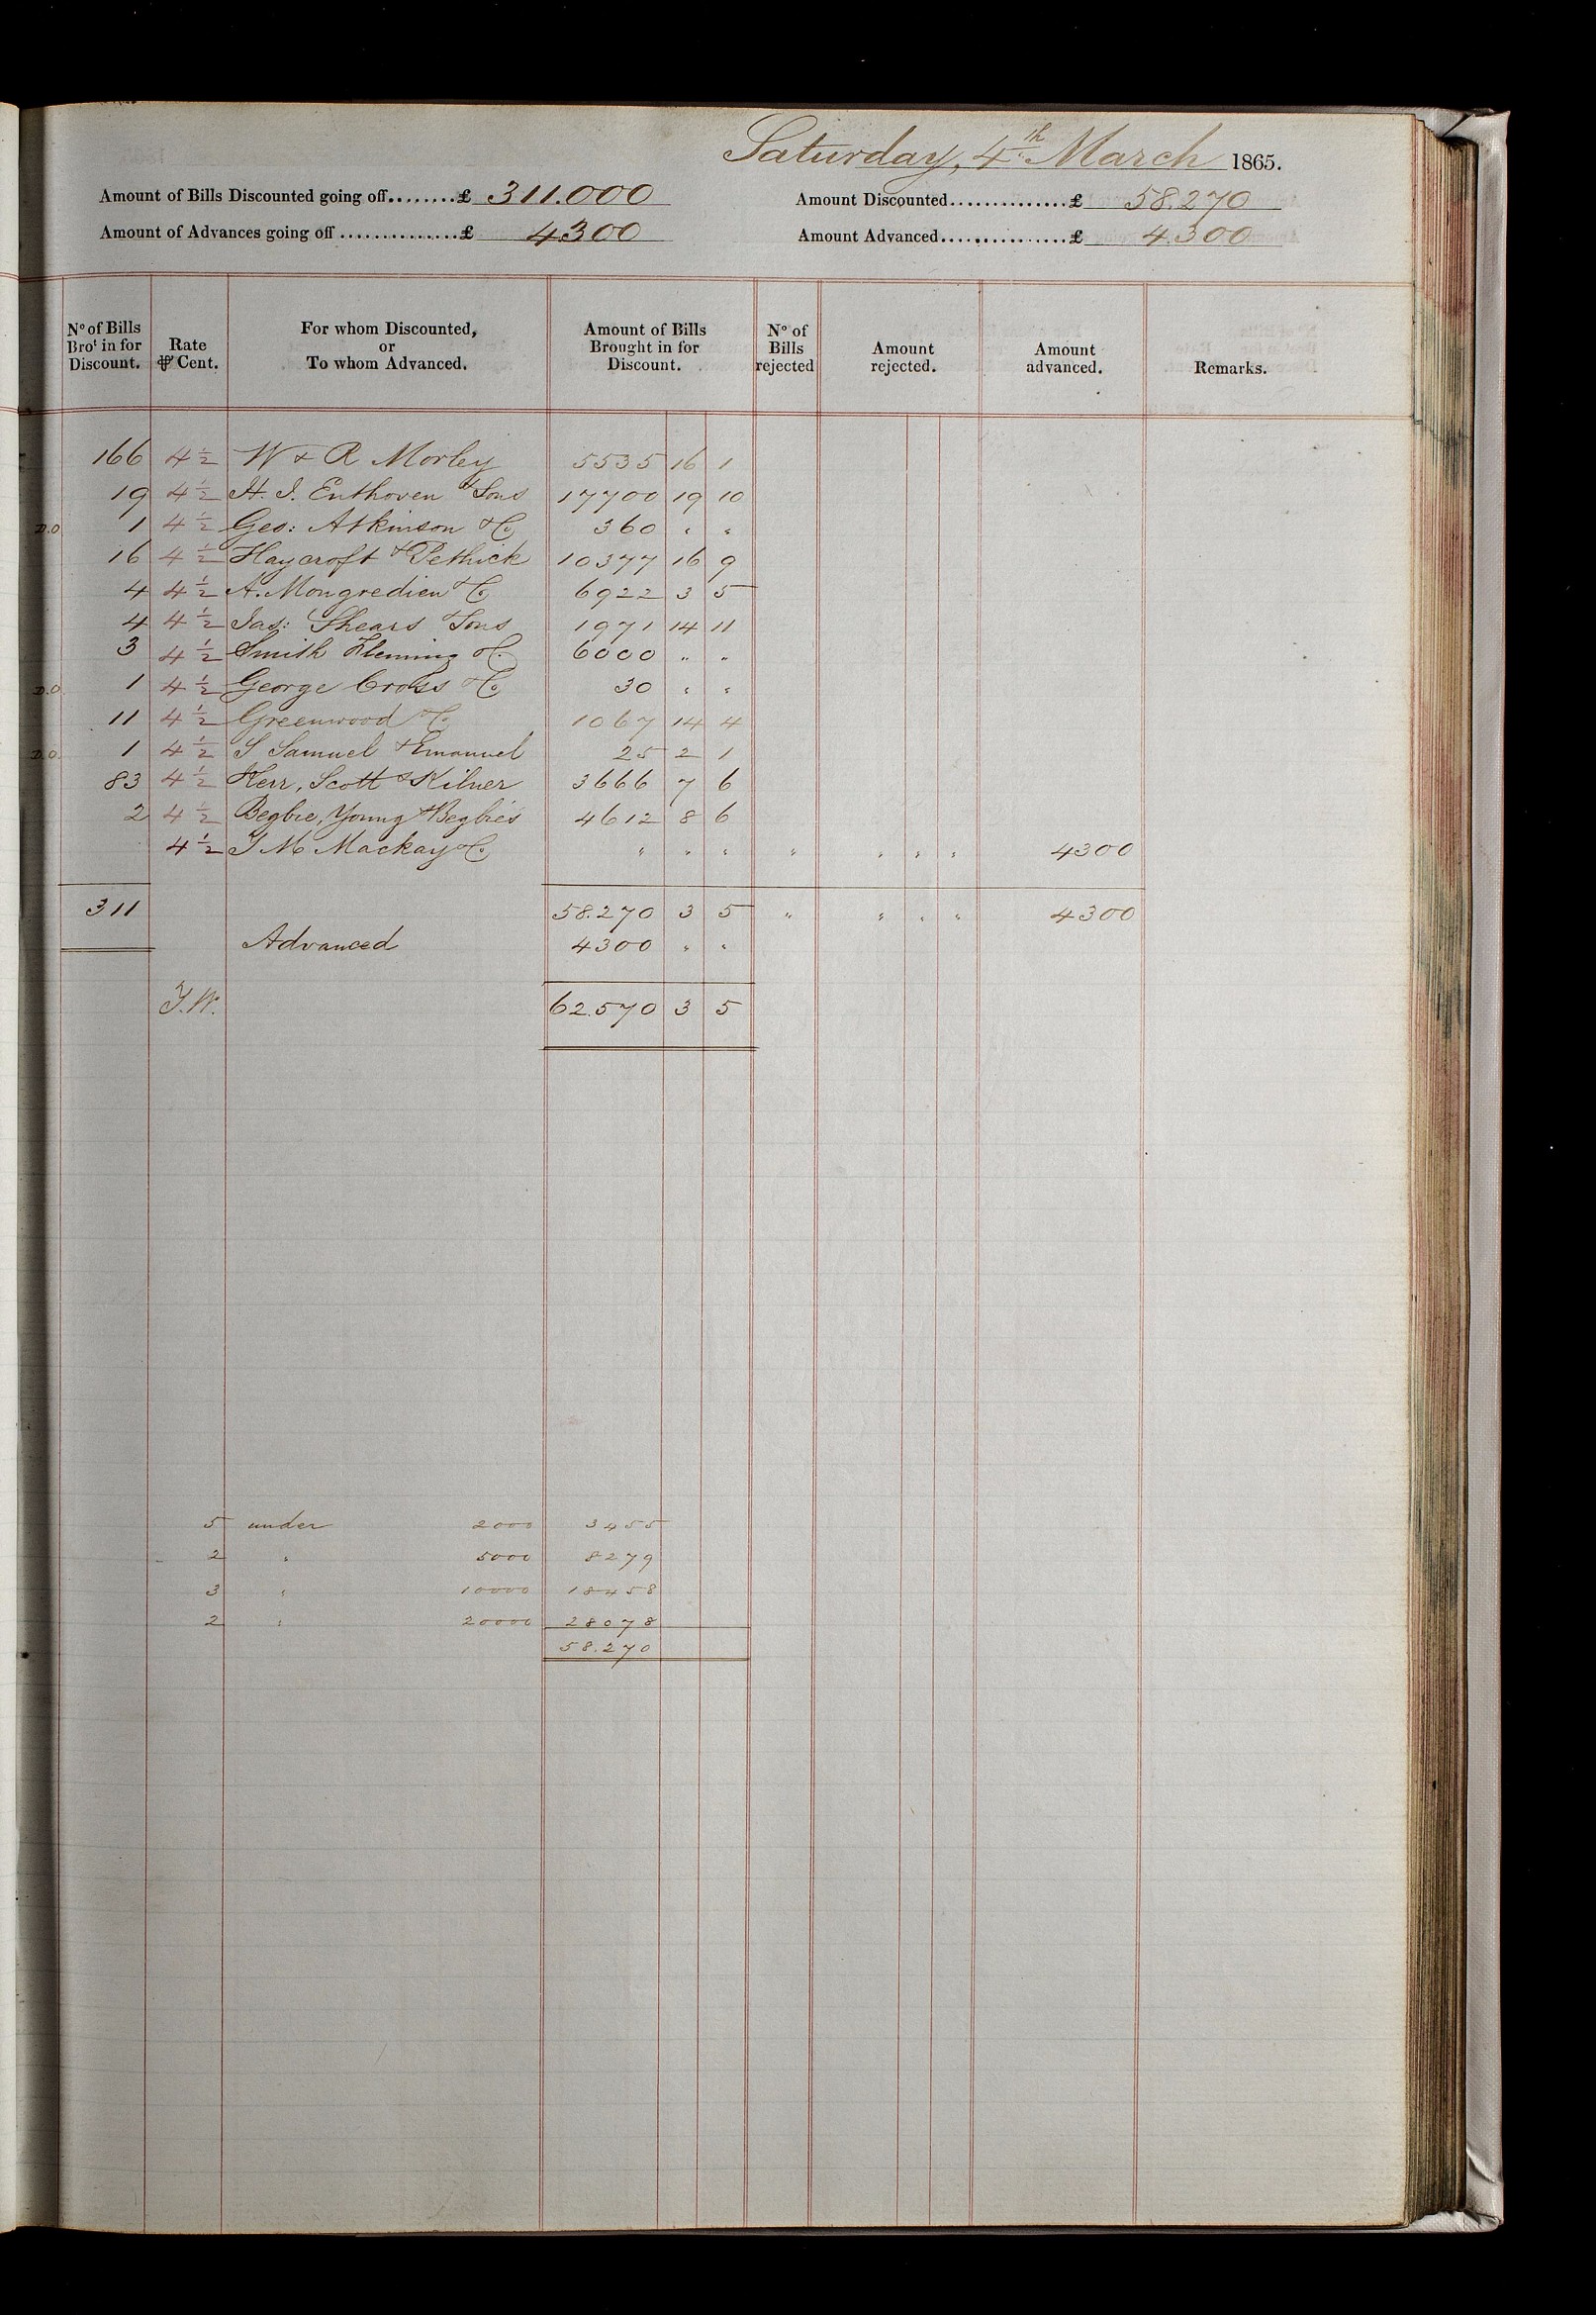 Saturday, 4th March 1865.
Amount of Bills Discounted going off........£ 311.000 Amount Discounted..............£ 58.270
Amount of Advances going off ...............£ 4300 Amount Advanced...............£ 4.300
No of Bills Brot in for Discount. Rate ⅌ Cent. For whom Discounted, or To whom Advanced. Amount of Bills Brought in for Discount. No of Bills rejected Amount rejected. Amount advanced. Remarks.
166 4½ W & R Morley 5535 16 1
19 4½ H. J. Enthoven & Sons 17700 19 10
D.O. 1 4½ Geo: Atkinson & Co 360 " "
16 4½ Haycroft & Pethick 10377 16 9
4 4½ A. Mongredien & Co 6922 3 5
4 4½ Jas: Shears & Sons 1971 14 11
3 4½ Smith Fleming & Co 6000 " "
D.O. 1 4½ George Cross & Co 30 " "
11 4½ Greenwood & Co 1067 14 4
D.O. 1 4½ S Samuel & Emanuel 25 2 1
83 4½ Kerr, Scott & Kilner 3666 7 6
2 4½ Begbie, Young & Begbies 4612 8 6
4½ J M Mackay & Co " " " " " " " 4300
311 58.270 3 5 " " " " 4300
Advanced 4300 " "
J.W. 62.570 3 5
5 under 2000 3455
2 " 5000 8279
3 " 10000 18458
2 " 20000 28078
58.270